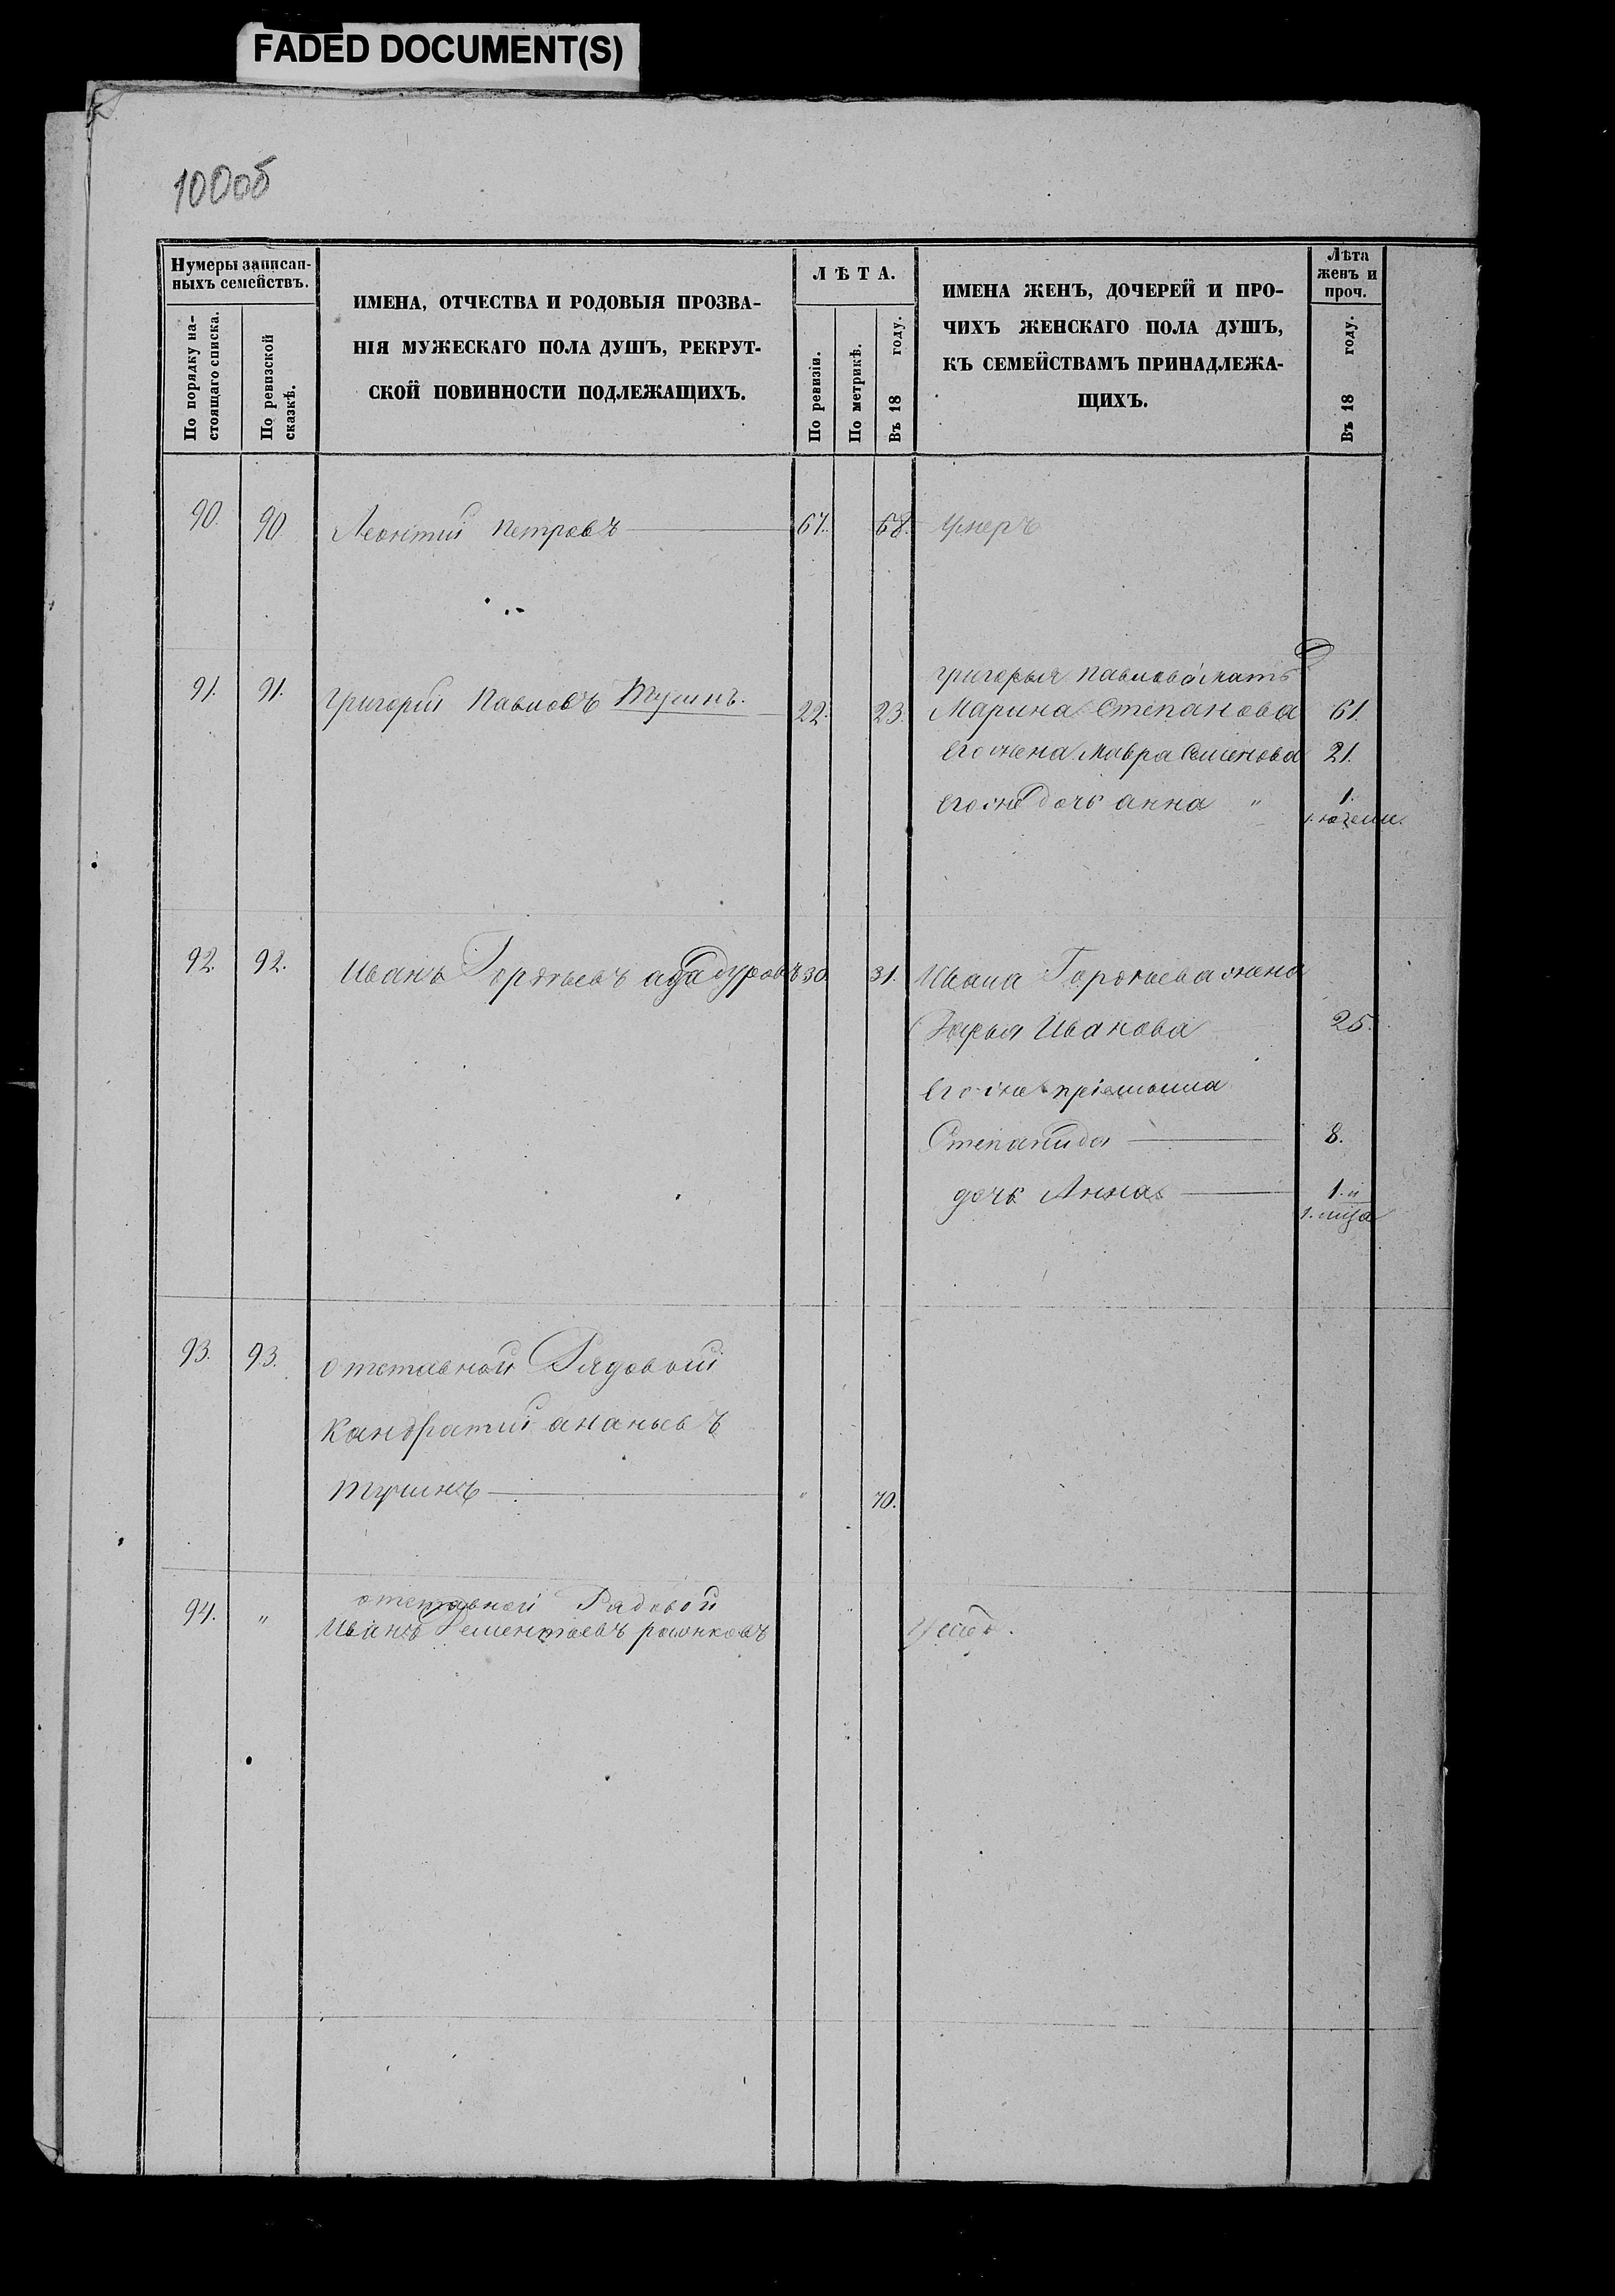 FADED DOCUMENT(S)
100об
Нумеры записан-
ныхъ семействъ.
По порядку на-
стоящаго списка.
По ревизской
сказкѣ.
ИМЕНА, ОТЧЕСТВА И РОДОВЫЯ ПРОЗВА-
НІЯ МУЖЕСКАГО ПОЛА ДУШЪ, РЕКРУТ-
СКОЙ ПОВИННОСТИ ПОДЛЕЖАЩИХЪ.
ЛѢТА.
По ревизіи.
По метрикѣ.
Въ 18 году.
ИМЕНА ЖЕНЪ, ДОЧЕРЕЙ И ПРО-
ЧИХЪ ЖЕНСКАГО ПОЛА ДУШЪ,
КЪ СЕМЕЙСТВАМЪ ПРИНАДЛЕЖА-
ЩИХЪ.
Лѣта
женъ и
проч.
Въ 18 году.
90. 90. Леонтий Петровъ 67. 68. Умеръ
Григорья Павлова мать
91. 91. Григорий Павловъ Тушинъ. 22. 23. Марина Степанова 61.
его жена Мавра Семенова 21.
его же дочь анна " 1.
92. 92. Иванъ Гордѣевъ 30. 31. Ивана Гордѣева жена
Дарья Иванова 25.
его же пріемыша
Степанида 8.
дочь Анна 1. и
93. 93. отставной Рядовой
Кандратий ананьевъ
Тушинъ " 70.
отставной Рядовой
94. " Иванъ Дементьевъ